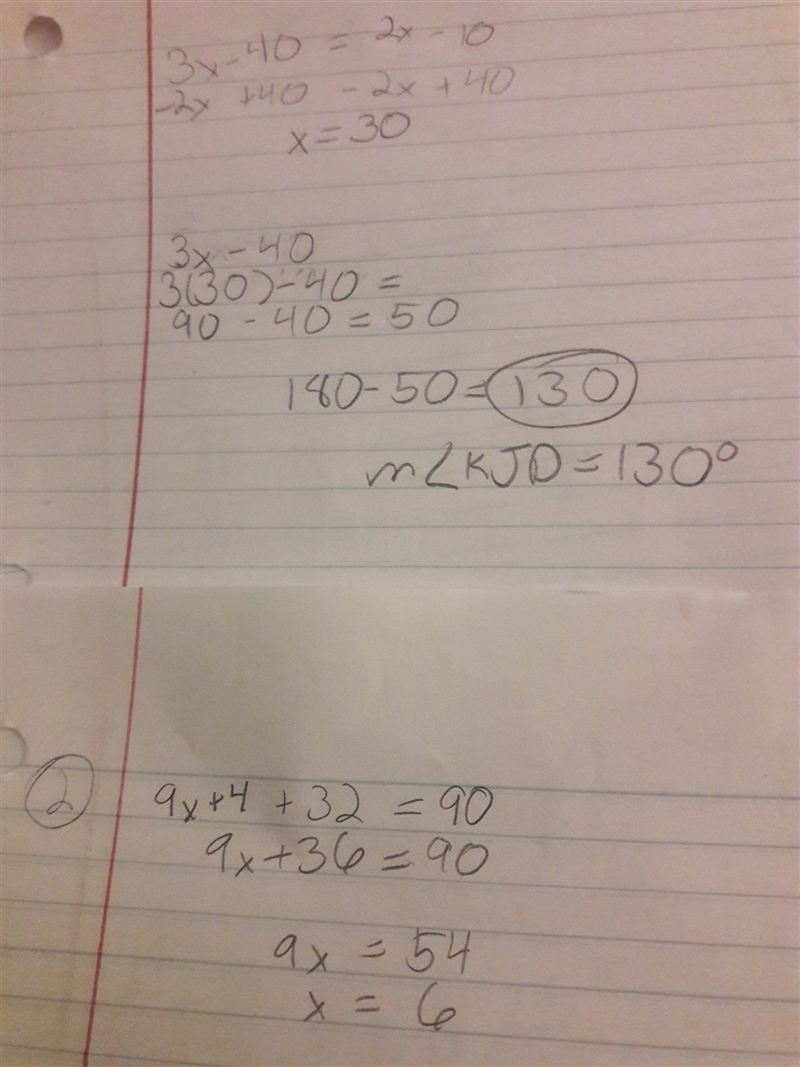 3x - 40 = 2x - 10
-2x +40 - 2x + 40
x = 30
3x - 40
3(30) - 40 =
90 - 40 = 50
180 - 50 = 130
m∠KJD = 130°
2 9x + 4 + 32 = 90
9x + 36 = 90
9x = 54
x = 6